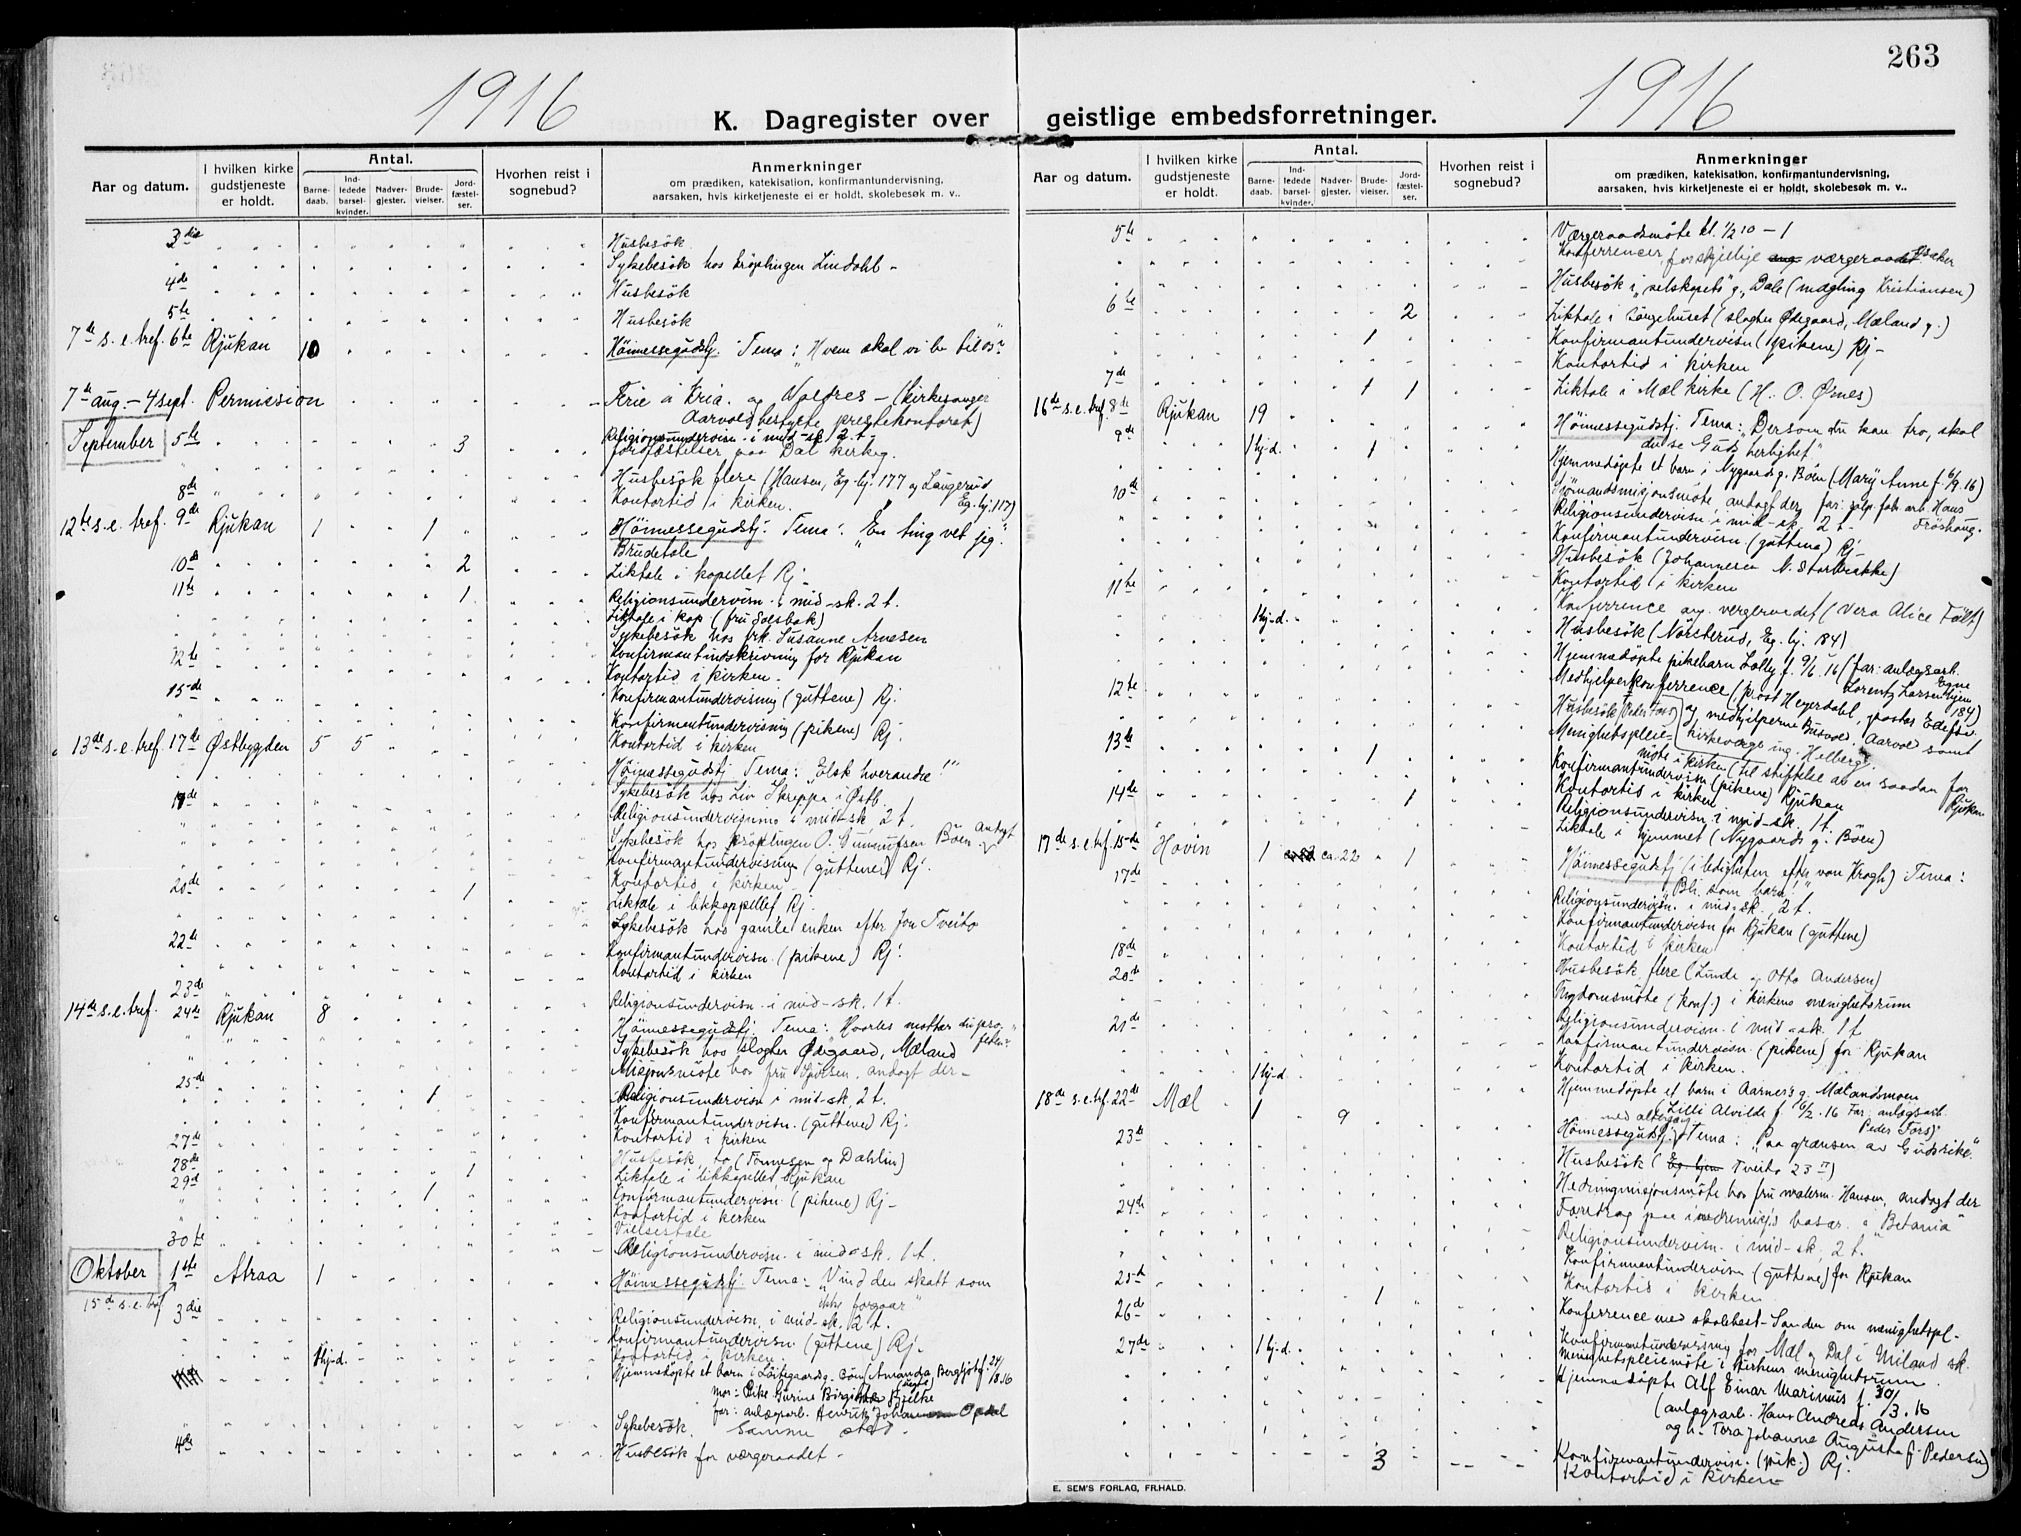 263
1916
1916
K. Dagregister over geistlige embedsforretninger.
Aar og datum.
I hvilken kirke gudstjeneste er holdt.
Antal.
Barne-daab.
Ind-ledede barsel-kvinder.
Nadver-gjester.
Brude-vielser.
Jord-fæstel-ser.
Hvorhen reist i sognebud?
Anmerkninger
om prædiken, katekisation, konfirmantundervisning,
aarsaken, hvis kirketjeneste ei er holdt, skolebesøk m. v..
3die Husbesök
Sykebesök hos kröplingen Lindahl -
4de Husbesök
5te Husbesök
7de s.e.tref. 6te Rjukan 10 Höimessegudstj. Tema: "Hvem skal vi be til os"
7de aug. - 4 sept. Permission Ferie i Kria. og Valdres - (kirkesanger
Aarvold bestyrte prestekontoret)
Religionsundervisn. i mid-sk. 2 t.
September 5te 3 Jordfæstelser paa Dal kirkeg.
Husbesök flere (Hansen, Eg. hj. 177 og Langerud
Eg. hj. 117)
8de Kontortid i kirken.
12te s.e. tref. 9de Rjukan 1 1 Höimessegudstj. Tema: "En ting vet jeg."
Brudetale
10de 2 Liktale i kapellet Rj -
11te 1 Religionsundervisn. i mid-sk. 2 t.
Liktale i kap (fru Solsbak)
Sykebesök hos frk. Susanne Arnesen
12te Konfirmantindskrivning for Rjukan
Kontortid i kirken.
15de Konfirmantundervisning (guttene) Rj.
Konfirmantundervisning (pikene) Rj.
Kontortid i kirken
13de s.e. tref. 17de Østbygden 5 5 Höimessegudstj Tema: "Elsk hverandre!"
Sykebesök hos Liv Skreppa i Østb.
Religionsundervisning i mid-sk. 2 t.
Sykebesök hos kröplingen O. Gunnufsen Böen. Andagt
Konfirmantundervisning (guttene) Rj.
Kontortid i kirken
20de 1 Liktale i likkapellet Rj.
Sykebesök hos gamle enken efter Jon Tveito
22te Konfirmantundervisn. (pikene) Rj.
Kontortid i kirken
23de Religionsundervisn. i mid-sk. 1 t.
14de s.e. tref. 24de Rjukan 8 Höimessegudstj. Tema: "Hvorles mottar du pro-
feten?"
Sykebesök hos slagter Ødegaard, Mæland
Misjonsmöte hos fru Sjursen, andagt der -
25de 1 Religionsundervisn. i mid-sk. 2 t.
Konfirmantundervisn. (guttene) Rj.
Kontortid i kirken
27de Husbesök, to (Tönnesen og Dahlin)
28de 1 Liktale i likkapellet Rjukan
29d 1 Konfirmantundervisn. (pikene) Rj -
Kontortid i kirken
Vielsestale
30te Religionsundervisn. i mid-sk. 1 t.
Oktober 1ste Atraa 1 Höimessegudstj. Tema: "Vind den skatt som
ikke forgaar"
15de s.e. tref.
3die Religionsundervisn. i mid-sk. 2 t.
Konfirmantundervisn. (guttene) Rj.
Kontortid i kirken.
1 hj-d. Hjemmedöpte et barn i Löitegaardsg. Böen (Amanda Bergljot f. 24/8 16
mor: Pike Gurine Birgitte Bjelke
far: anlægsarb. Henrik Johan
Sykebesök. Samme sted.
4de Husbesök for værgeraadet -
Aar og datum.
I hvilken kirke gudstjeneste er holdt.
Antal.
Barne-daab.
Ind-ledede barsel-kvinder.
Nadver-gjester.
Brude-vielser.
Jord-fæstel-ser.
Hvorhen reist i sognebud?
Anmerkninger
om prædiken, katekisation, konfirmantundervisning,
aarsaken, hvis kirketjeneste ei er holdt, skolebesøk m. v..
5te Værgeraadsmöte kl. 1/2 10 - 1
Konferrencer, forskjellige ang. værgeraadssaker
Husbesök i "selskapets" g. Dale (mægling Kristiansen)
6te 2 Liktale i Sörgehuset (slagter Ødegaard, Mæland g.)
1 Konfirmantundervisn (pikene) Rj -
Kontortid i kirken
7de 1 1 Liktale i Mæl kirke (H. O. Ørnes)
16de s.e. tref. 8de Rjukan 19 Höimessegudstj. Tema: "Dersom du kan tro, skal
du se Guds herlighet".
9de 1 hj-d. 1 Hjemmedöpte et barn i Nygaards g. Böen (Mary Anne f. 6/9 16)
Sjömandsmisjonsmöte, andagt der far: salp. fabr. arb. Hans
Fröshaug.
10de Religionsundervisn. i mid-sk. 2 t.
Konfirmantundervisn. (guttene) Rj -
Husbesök (Johannesen N. Storbrække)
Kontortid i kirken
11te Konferrence ang. vergeraadet (Vera Alice Fält)
1 hj-d. Husbesök (Norsterud, Eg. hj. 84)
Hjemmedöpte pikebarn Lolly f. 9/6 16 (far: anlægsarb.
Lorentz Larsen Egne hjem 184)
12te Medhjelperkonferrence (prost Heyerdahl, pastor Edefsv.
Husbesök (Peder Foss) og medhjelperne Busvold, Aarvold samt
kirkeverge ing. Holberg.
13te 1 Menighetspleie-
möte i kirken (til stiftelse av en saadan for
Rjukan
Konfirmantundervisn (pikene) Rjukan
Kontortid i kirken
14de 1 Religionsundervisn. i mid-sk. 1 t.
Liktale i hjemmet (Nygaards g. Böen)
17de s.e. tref. 15de Hovin 1 ca. 22 1 Höimessegudstj (i ledigheten efter von Krogh) Tema:
"Bli som barn!"
17de Religionsundervisn. i mid-sk. 2 t.
Konfirmantundervisn for Rjukan (guttene)
Kontortid i kirken
18de Husbesök, flere (Lunde og Otto Andersen)
20de Ungdomsmöte (konf.) i kirkens menighetsrum
21de Religionsundervisn. i mid-sk. 1 t
Konfirmantundervisn. (pikene) for Rjukan
Kontortid i kirken.
1 hj-d. Hjemmedöpte et barn i Aarnes g. Mælandsmoen
(Lilli Alvilde f. 6/2. 16 Far: anlægsarb.
Peder Fors)
18de s.e. tref. 22de Mæl 1 9 med altergang
Höimessegudstj. Tema: "Paa grænsen av Gudsrike".
23de Husbesök ( Tveito 23 II)
Hedningmisjonsmöte hos fru malerm. Hansen, andagt der
24de Foredrag paa indremisj's basar i "Betania"
Religionsundervisn. i mid-sk. 2 t.
Konfirmantundervisn (guttene) for Rjukan
25de Kontortid i kirken
26de 1 Konferrence med skolebest. Sanden om menighetspl-
27de 1 hj-d. Konfirmantundervisning for Mæl og Dal i Miland sk.
Menighetspleiemöte i kirkens menighetsrum.
Hjemmedöpte Alf Einar Marinius f. 30/3. 16
(anlægsarb. Hans Andreas Andersen
og h. Tora Johanne Augusta f. Pedersen)
3 Konfirmantundervisn. (pik.) Rj.
Kontortid i kirken -
E. SEM'S FORLAG, FR.HALD.